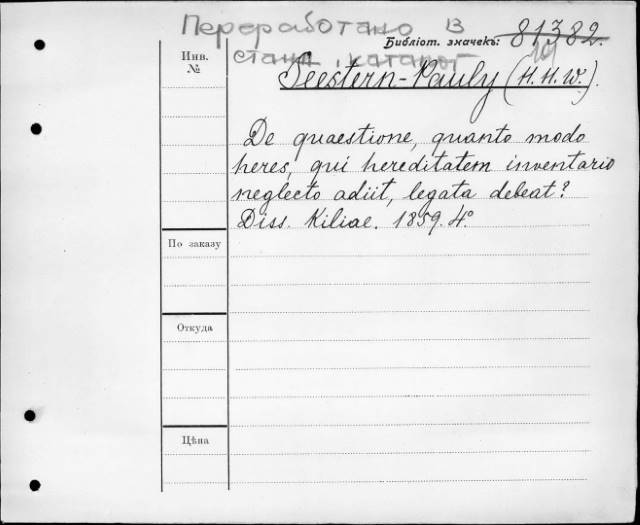 Переработано в
Библіот. значекъ: 81382.
стац. каталог
Инв.
№
Seestern-Pauly (H. H. W.).
De quaestione, quanto modo
heres, qui hereditatem inventario
neglecto adiit, legata debeat?
Diss. Kiliae. 1859. 4°.
По заказу
Откуда
Цѣна